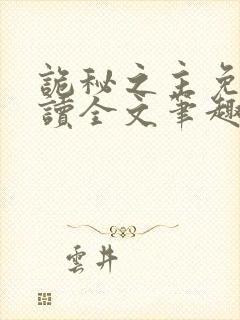 詭秘之主免
讀全文筆趣
雲井